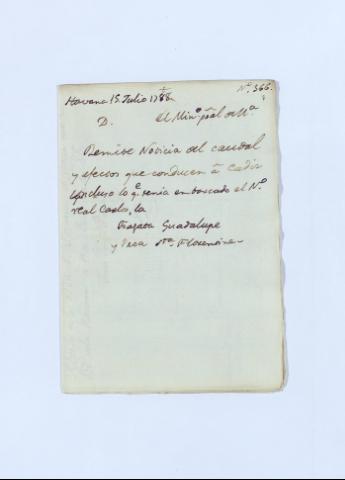 Havana 15 Julio 1786 Nº. 366.
D. El Minº pral de Mª
Remite Noticia del caudal
y efectos que conducen à Cadiz
incluso lo qe. tenia embarcado el Nº.
real Carlos, la
Fragata Guadalupe
y Urca Sta. Florentina